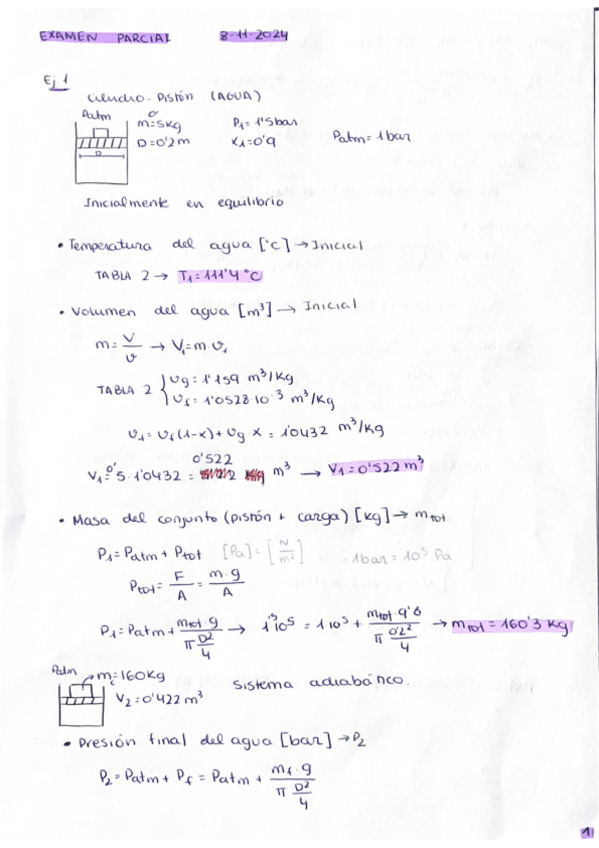 EXAMEN PARCIAL 8-11-2024
Ej 1
Cilindro-Pistón (AGUA)
Patm
m=0'5kg P1=1'5bar
D=0'2m X1=0'9 Patm=1bar
D
Inicialmente en equilibrio
• Temperatura del agua [°C] → Inicial
TABLA 2 → T1=111'4°C
• Volumen del agua [m³] → Inicial
m = V/v → V1=m·v1
TABLA 2 { vg = 1'159 m³/kg
vf = 1'0528·10⁻³ m³/kg
v1 = vf(1-x)+vg·x = 1'0432 m³/kg
V1 = 0'5·1'0432 = 0'522 m³ → V1=0'522m³
• Masa del conjunto (pistón + carga) [kg] → mtot
P1=Patm + Ptot [Pa]=[N/m²] 1bar = 10⁵ Pa
Ptot = F/A = m·g/A
P1=Patm + mtot·g/(π D²/4) → 1'5 10⁵ = 1 10⁵ + mtot·9'8/(π 0'2²/4) → mtot=160'3 kg
Patm
m=160kg Sistema adiabático.
V2=0'422m³
• Presión final del agua [bar] → P2
P2=Patm + Pf = Patm + mf·g/(π D²/4)
1